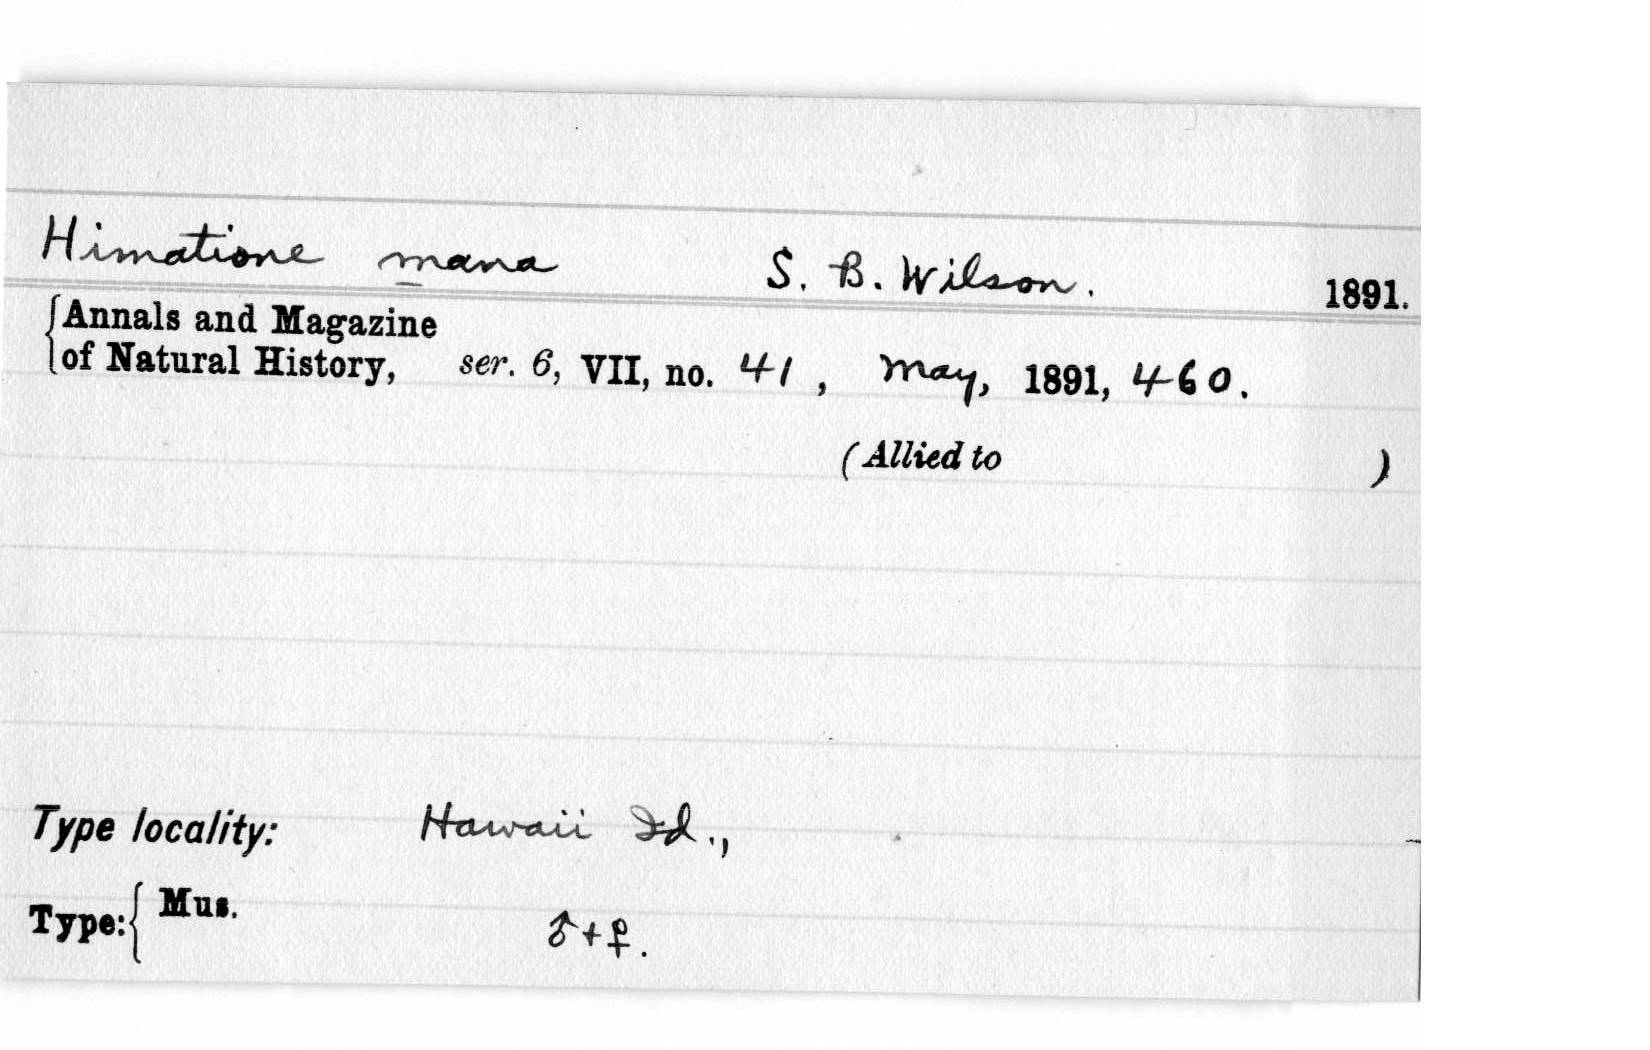 Himatione mana S. B. Wilson. 1891.
Annals and Magazine
of Natural History, ser. 6, VII, no. 41, May, 1891, 460.
(Allied to )
Type locality: Hawaii Id.,
Type: Mus. ♂+♀.